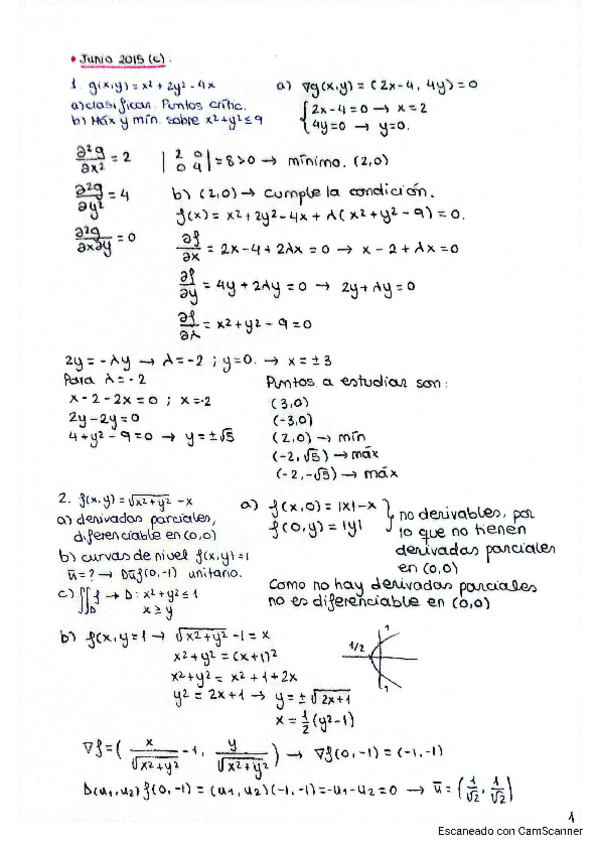 • Junio 2015 (c).
1. g(x,y) = x² + 2y² - 4x
a) clasificar. Puntos crític.
b) Máx y mín. sobre x²+y² ≤ 9
a) ∇g(x,y) = (2x-4, 4y) = 0
{ 2x-4=0 → x=2
4y=0 → y=0.
∂²g/∂x² = 2
| 2 0 / 0 4 | = 8 > 0 → mínimo. (2,0)
∂²g/∂y² = 4
b) (2,0) → cumple la condición.
f(x) = x² + 2y² - 4x + λ(x² + y² - 9) = 0.
∂²g/∂x∂y = 0
∂f/∂x = 2x - 4 + 2λx = 0 → x - 2 + λx = 0
∂f/∂y = 4y + 2λy = 0 → 2y + λy = 0
∂f/∂λ = x² + y² - 9 = 0
2y = -λy → λ = -2 ; y=0. → x = ±3
Para λ = -2
x - 2 - 2x = 0 ; x = -2
2y - 2y = 0
4 + y² - 9 = 0 → y = ±√5
Puntos a estudiar son:
(3,0)
(-3,0)
(2,0) → mín
(-2,√5) → máx
(-2,-√5) → máx
2. f(x,y) = √x²+y² - x
a) derivadas parciales,
diferenciable en (0,0)
b) curvas de nivel f(x,y)=1
ū = ? → Dūf(0,-1) unitario.
c) ∬D f → D: x²+y² ≤ 1
x ≥ y
a) f(x,0) = |x| - x
f(0,y) = |y|
} no derivables, por
lo que no tienen
derivadas parciales
en (0,0)
Como no hay derivadas parciales
no es diferenciable en (0,0)
b) f(x,y = 1 → √x²+y² - 1 = x
x² + y² = (x+1)²
x² + y² = x² + 1 + 2x
y² = 2x + 1 → y = ±√2x+1
x = 1/2 (y² - 1)
1
1/2
1
∇f = ( x/√x²+y² - 1, y/√x²+y² ) → ∇f(0,-1) = (-1,-1)
D(u₁,u₂)f(0,-1) = (u₁,u₂)(-1,-1) = -u₁ - u₂ = 0 → ū = (1/√2, 1/√2)
1
Escaneado con CamScanner